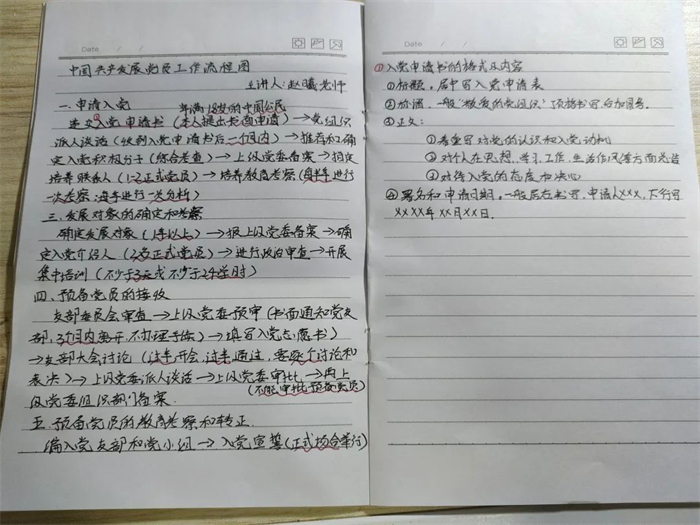 Date / /
中国共产发展党员工作流程图
主讲人:赵曦老师
一.申请入党 年满18岁的中国公民
递交入党申请书(本人提出书面申请)→党组织
派人谈话(收到入党申请书后一个月内)→推荐和确
定入党积极分子(综合考查)→上级党委备案→指定
培养联系人(1-2正式党员)→培养教育考察(每半年进行
一次考察,每年进行一次分析)
三.发展对象的确定和考察
确定发展对象(1年以上)→报上级党委备案→确
定入党介绍人(2名正式党员)→进行政治审查→开展
集中培训(不少于3天或不少于24学时)
四.预备党员的接收
支部委员会审查→上级党委预审(书面通知党支
部,3个月内离开,不办理手续)→填写入党志愿书)
→支部大会讨论(过半开会,过半通过,需逐个讨论和
表决)→上级党委派人谈话→上级党委审批→再上
(不能审批预备党员)
级党委组织部门备案
五.预备党员的教育考察和转正
编入党支部和党小组→入党宣誓(正式场合举行)
Date / /
①入党申请书的格式及内容
①标题,居中写入党申请表
②称谓,一般"敬爱的党组织"顶格书写后加冒号.
③正文:
①着重写对党的认识和入党动机
②对个人在思想、学习、工作、生活作风等方面总结
③对待入党的态度和决心
④署名和申请日期,一般居右书写,申请人xxx,下行写
xxxx年xx月xx日.